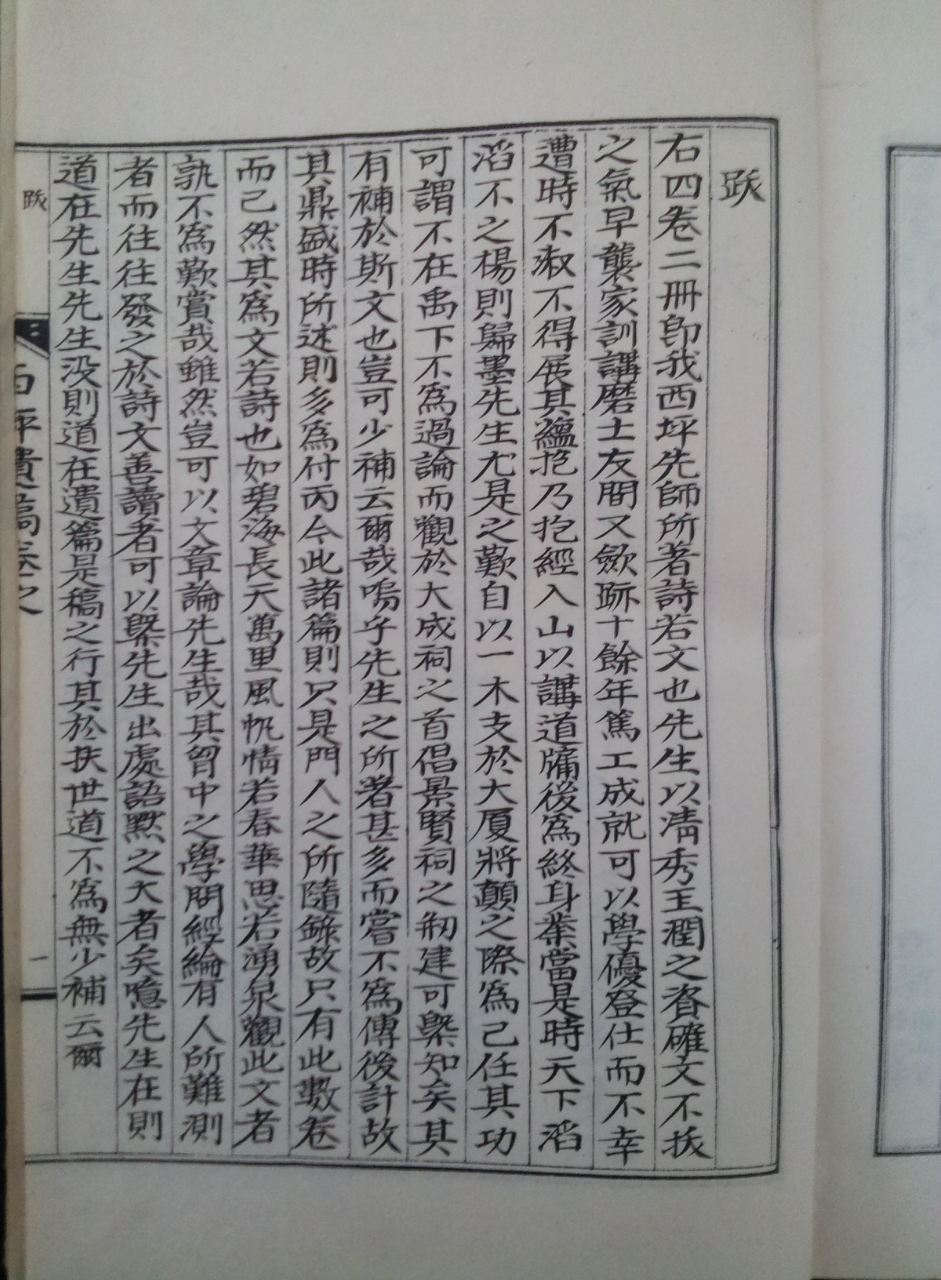 跋
右四卷二冊卽我西坪先師所著詩若文也先生以淸秀玉潤之資確文不拔
之氣早襲家訓講磨士友間又歛跡十餘年篤工成就可以學優登仕而不幸
遭時不淑不得展其蘊抱乃抱經入山以講道牖後爲終身業當是時天下滔
滔不之楊則歸墨先生尤是之歎自以一木支於大厦將顚之際爲己任其功
可謂不在禹下不爲過論而觀於大成祠之首倡景賢祠之刱建可槩知矣其
有補於斯文也豈可少補云爾哉嗚乎先生之所著甚多而嘗不爲傳後計故
其鼎盛時所述則多爲付丙今此諸篇則只是門人之所隨錄故只有此數卷
而己然其爲文若詩也如碧海長天萬里風帆情若春華思若湧泉觀此文者
孰不爲歎賞哉雖然豈可以文章論先生哉其胷中之學問經綸有人所難測
者而往往發之於詩文善讀者可以槩先生出處語默之大者矣噫先生在則
道在先生先生没則道在遺篇是稿之行其於扶世道不爲無少補云爾
跋
西坪遺稿卷之
一